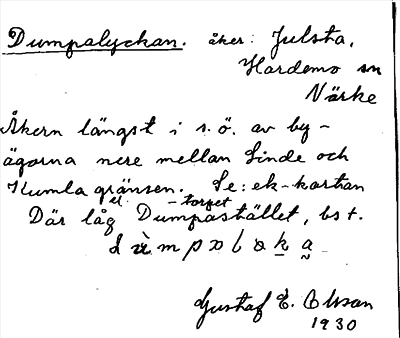 Dumpalyckan. åker: Julsta,
Hardemo sn
Närke
Åkern längst i s.ö. av by-
ägorna nere mellan Linde och
Kumla gränsen. Se: ek-kartan
Där låg Dumpastället, bst.
el. -torpet
Gustaf E. Olsson
1930